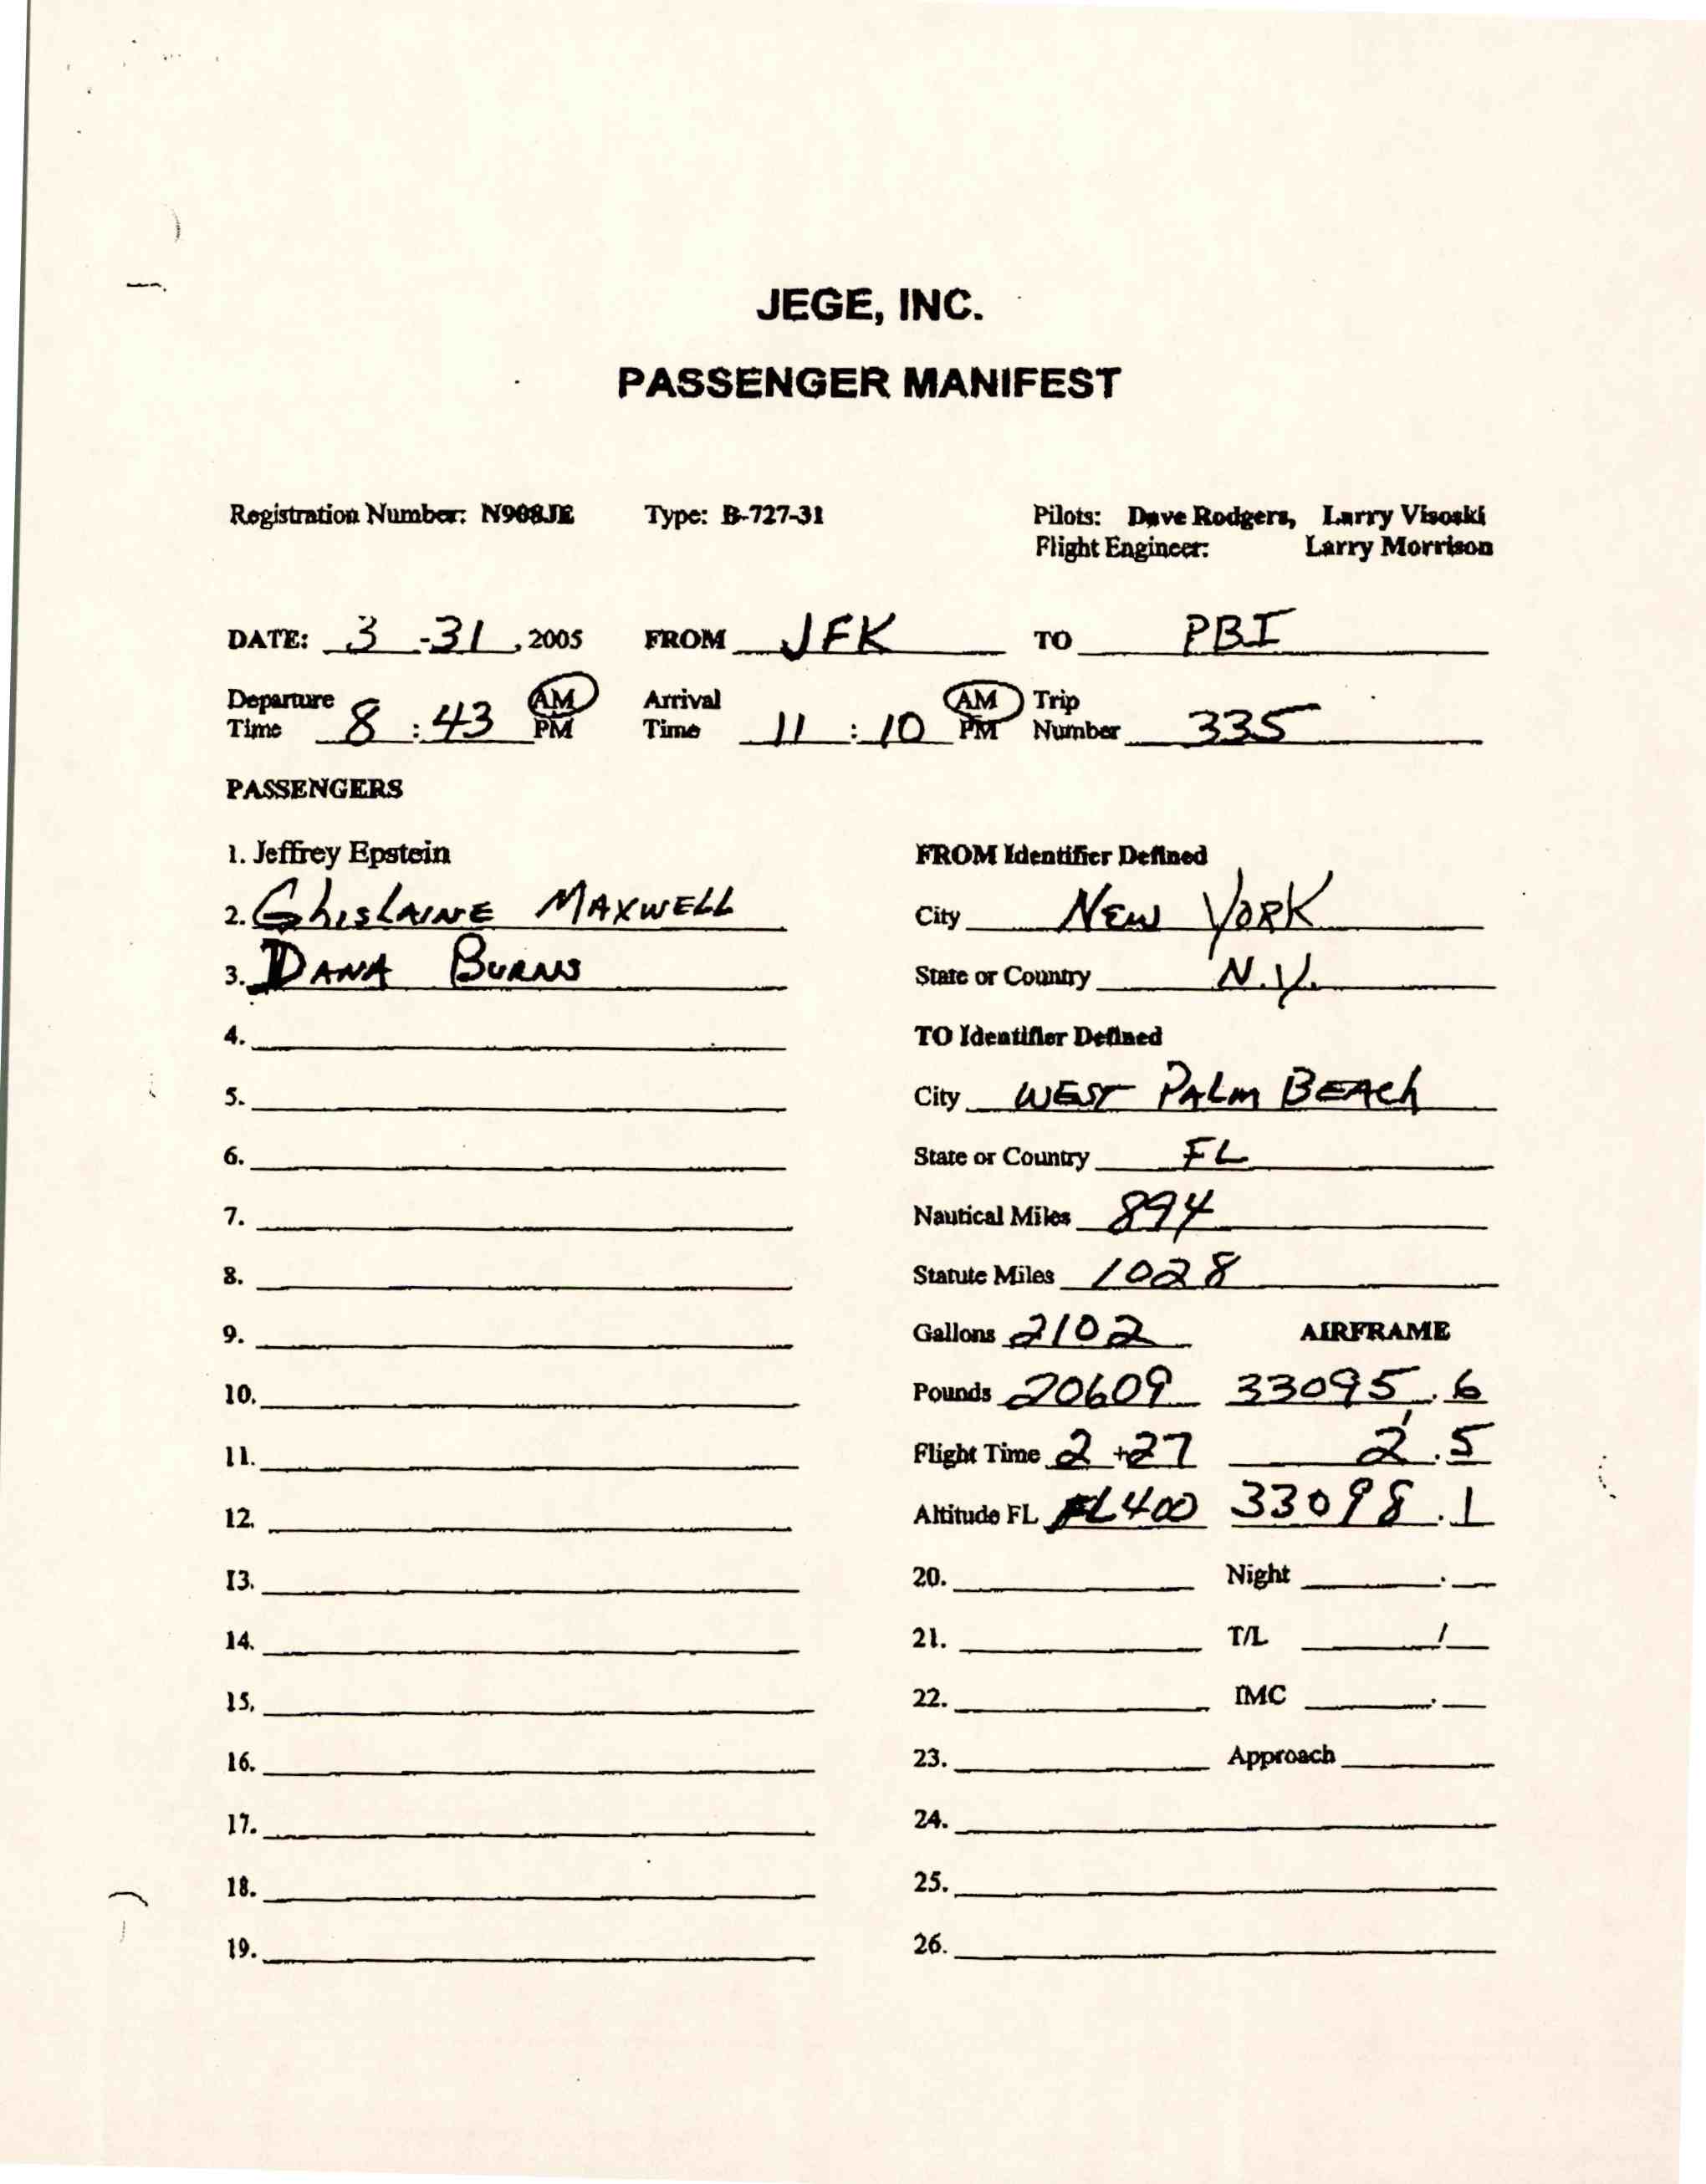 JEGE, INC.
PASSENGER MANIFEST
Registration Number: N908JE Type: B-727-31 Pilots: Dave Rodgers, Larry Visoski
Flight Engineer: Larry Morrison
DATE: 3 -31, 2005 FROM JFK TO PBI
Departure Time 8 : 43 AM PM Arrival Time 11 : 10 AM PM Trip Number 335
PASSENGERS
1. Jeffrey Epstein
2. GhisLAINE MAXWELL
3. DANA BURNS
4.
5.
6.
7.
8.
9.
10.
11.
12.
13.
14.
15.
16.
17.
18.
19.
FROM Identifier Defined
City NEW YORK
State or Country N.Y.
TO Identifier Defined
City WEST PALM BEACh
State or Country FL
Nautical Miles 894
Statute Miles 1028
Gallons 2102 AIRFRAME
Pounds 20609 33095.6
Flight Time 2 +27 2.5
Altitude FL FL400 33098.1
20. Night .
21. T/L /
22. IMC .
23. Approach
24.
25.
26.